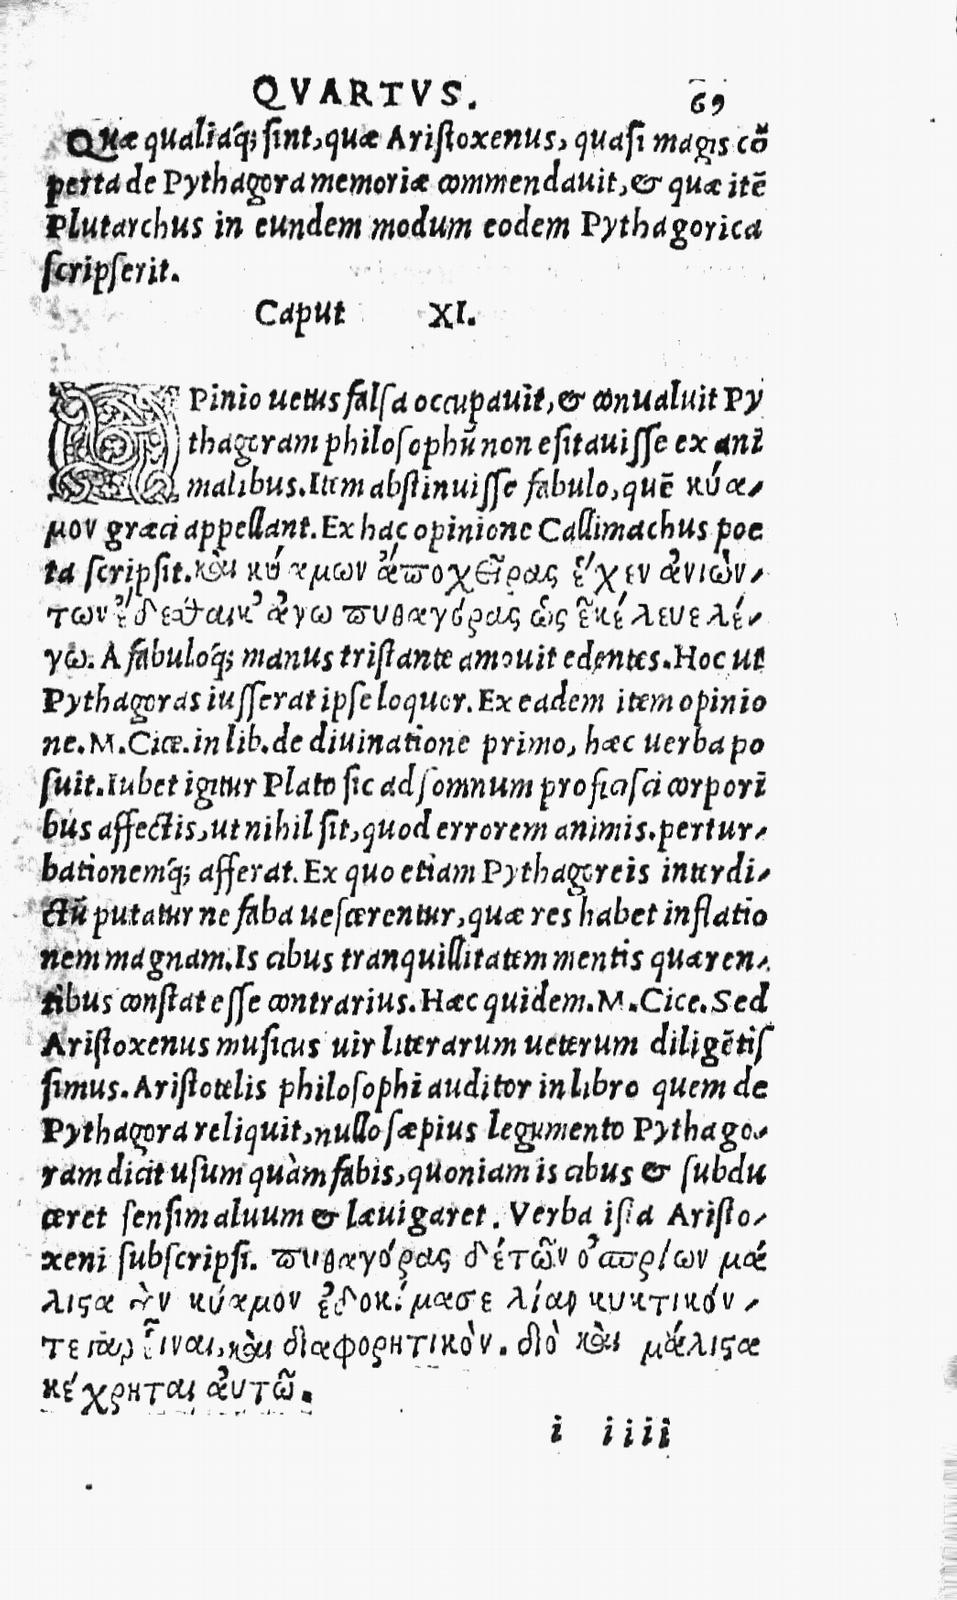 QVARTVS. 69
Quæ qualiaq́; sint, quæ Aristoxenus, quasi magis cõ
perta de Pythagora memoriæ commendauit, & quæ itẽ
Plutarchus in eundem modum eodem Pythagorica
scripserit.
Caput XI.
OPinio uetus falsa occupauit, & conualuit Py
thagoram philosophũ non esitauisse ex anĩ
malibus. Item abstinuisse fabulo, quẽ κύα-
μον græci appellant. Ex hac opinione Callimachus poe
ta scripsit. καὶ κύαμων ἄπο χεῖρας ἔχεν ἀνιών-
των ἔδεσθαι κἀγω πυθαγόρας ὡς ἐκέλευε λέ-
γω. A fabuloq́; manus tristante amouit edentes. Hoc ut
Pythagoras iusserat ipse loquor. Ex eadem item opinio
ne. M. Cice. in lib. de diuinatione primo, hæc uerba po
suit. Iubet igitur Plato sic ad somnum proficisci corporĩ
bus affectis, ut nihil sit, quod errorem animis. pertur-
bationemq́; afferat. Ex quo etiam Pythagoreis interdi-
ctũ putatur ne faba uescerentur, quæ res habet inflatio
nem magnam. Is cibus tranquillitatem mentis quæren-
tibus constat esse contrarius. Hæc quidem. M. Cice. Sed
Aristoxenus musicus uir literarum ueterum diligẽtis
simus. Aristotelis philosophi auditor in libro quem de
Pythagora reliquit, nullo sæpius legumento Pythago-
ram dicit usum quàm fabis, quoniam is cibus & subdu
ceret sensim aluum & læuigaret. Verba ista Aristo-
xeni subscripsi. πυθαγόρας δέ τῶν ὀσπρίων μά
λιϛα τὸν κύαμον ἐδοκίμασε λίαν κυκτικόν-
τε γὰρ εἶναι, καὶ διαφορητικὸν. διὸ καὶ μάλιϛα
κέχρηται ἀυτῶ.
i iiii